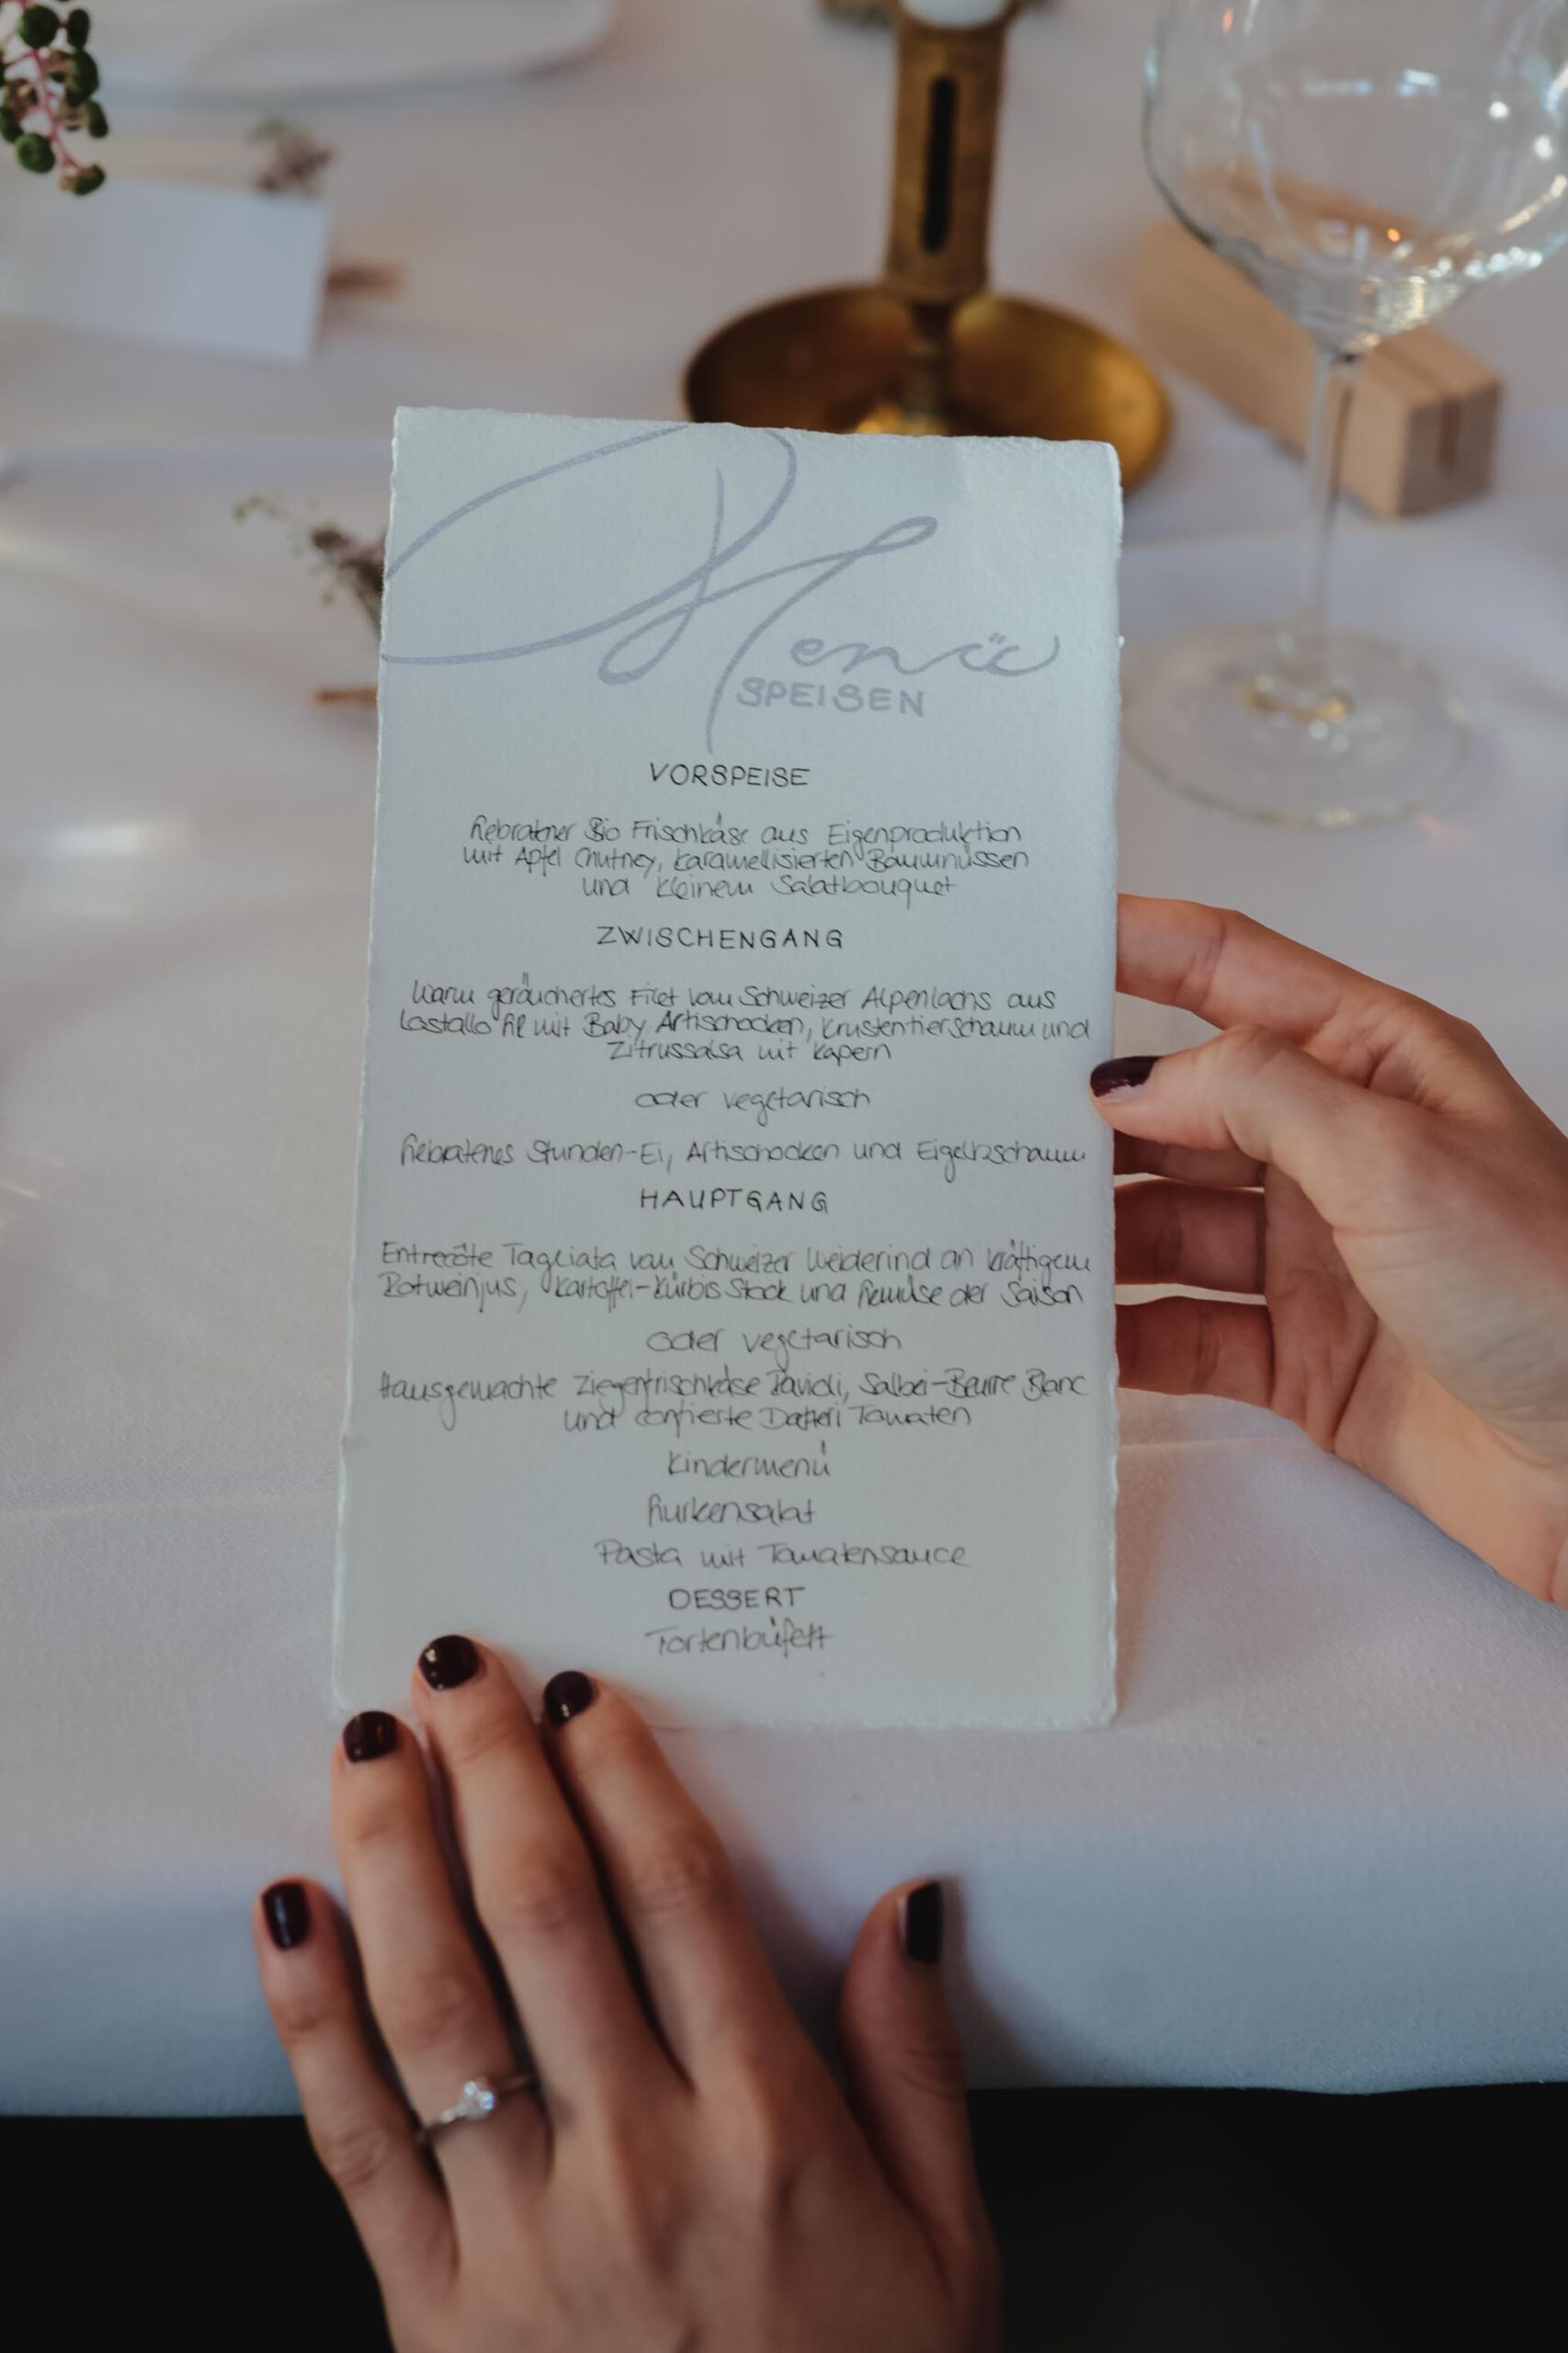 Menü
SPEISEN
VORSPEISE
Gebratner Bio Frischkäse aus Eigenproduktion
mit Apfel Chutney, karamellisierten Baumnüssen
und kleinem Salatbouquet
ZWISCHENGANG
Warm geräuchertes Filet vom Schweizer Alpenlachs aus
Lostallo GR mit Baby Artischocken, Krustentierschaum und
Zitrussalsa mit Kapern
oder vegetarisch
Gebratenes Stunden-Ei, Artischocken und Eigelbschaum
HAUPTGANG
Entrecôte Tagliata vom Schweizer Weiderind an kräftigem
Rotweinjus, Kartoffel-Kürbis Stock und Gemüse der Saison
oder vegetarisch
Hausgemachte Ziegenfrischkäse Ravioli, Salbei-Beurre Blanc
und confierte Datteri Tomaten
Kindermenü
Gurkensalat
Pasta mit Tomatensauce
DESSERT
Tortenbüfett